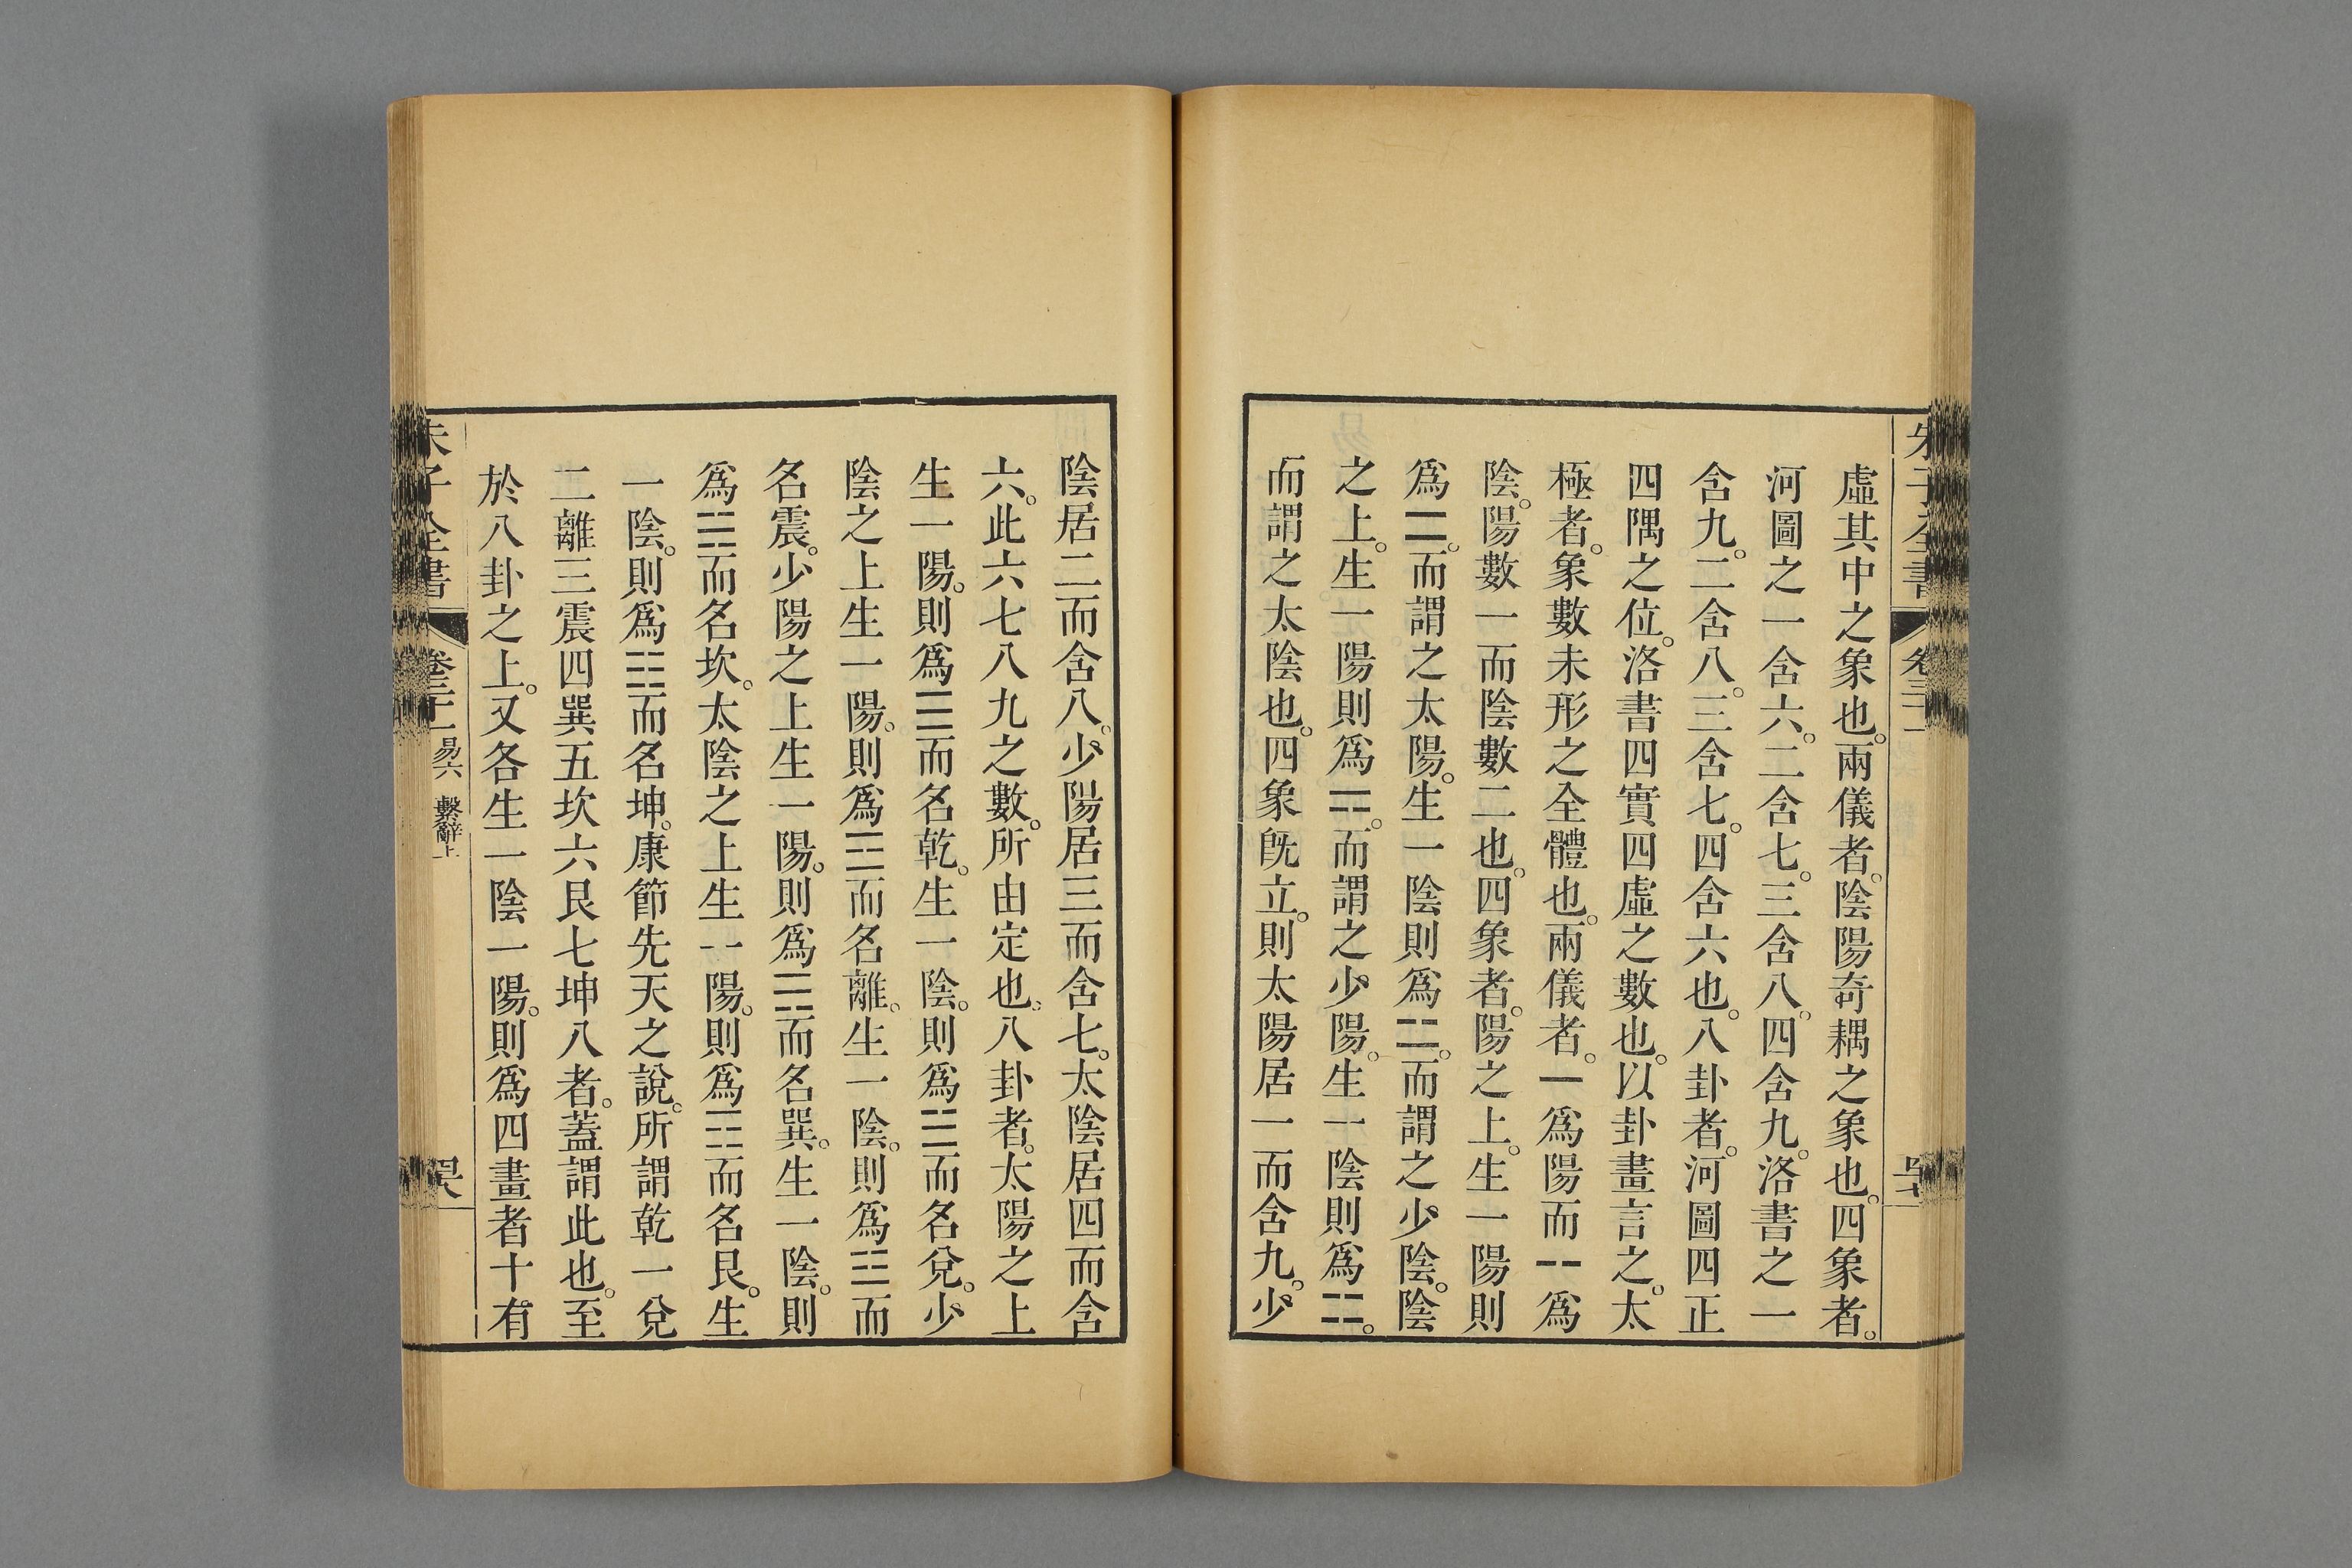 朱子全書 卷三十一
虛其中之象也。兩儀者。陰陽奇耦之象也。四象者。
河圖之一含六。二含七。三含八。四含九。洛書之一
含九。二含八。三含七。四含六也。八卦者。河圖四正
四隅之位。洛書四實四虛之數也。以卦畫言之。太
極者。象數未形之全體也。兩儀者。⚊爲陽而⚋爲
陰。陽數一而陰數二也。四象者。陽之上。生一陽則
爲⚌。而謂之太陽。生一陰則爲⚍。而謂之少陰。陰
之上。生一陽則爲⚎。而謂之少陽。生一陰則爲⚏。
而謂之太陰也。四象旣立。則太陽居一而含九。少
陰居二而含八。少陽居三而含七。太陰居四而含
六。此六七八九之數。所由定也。八卦者。太陽之上
生一陽。則爲☰而名乾。生一陰。則爲☱而名兌。少
陰之上生一陽。則爲☲而名離。生一陰。則爲☳而
名震。少陽之上生一陽。則爲☴而名巽。生一陰。則
爲☵而名坎。太陰之上生一陽。則爲☶而名艮。生
一陰。則爲☷而名坤。康節先天之說。所謂乾一兌
二離三震四巽五坎六艮七坤八者。蓋謂此也。至
於八卦之上。又各生一陰一陽。則爲四畫者十有
朱子全書 卷三十一 易六 繫辭上